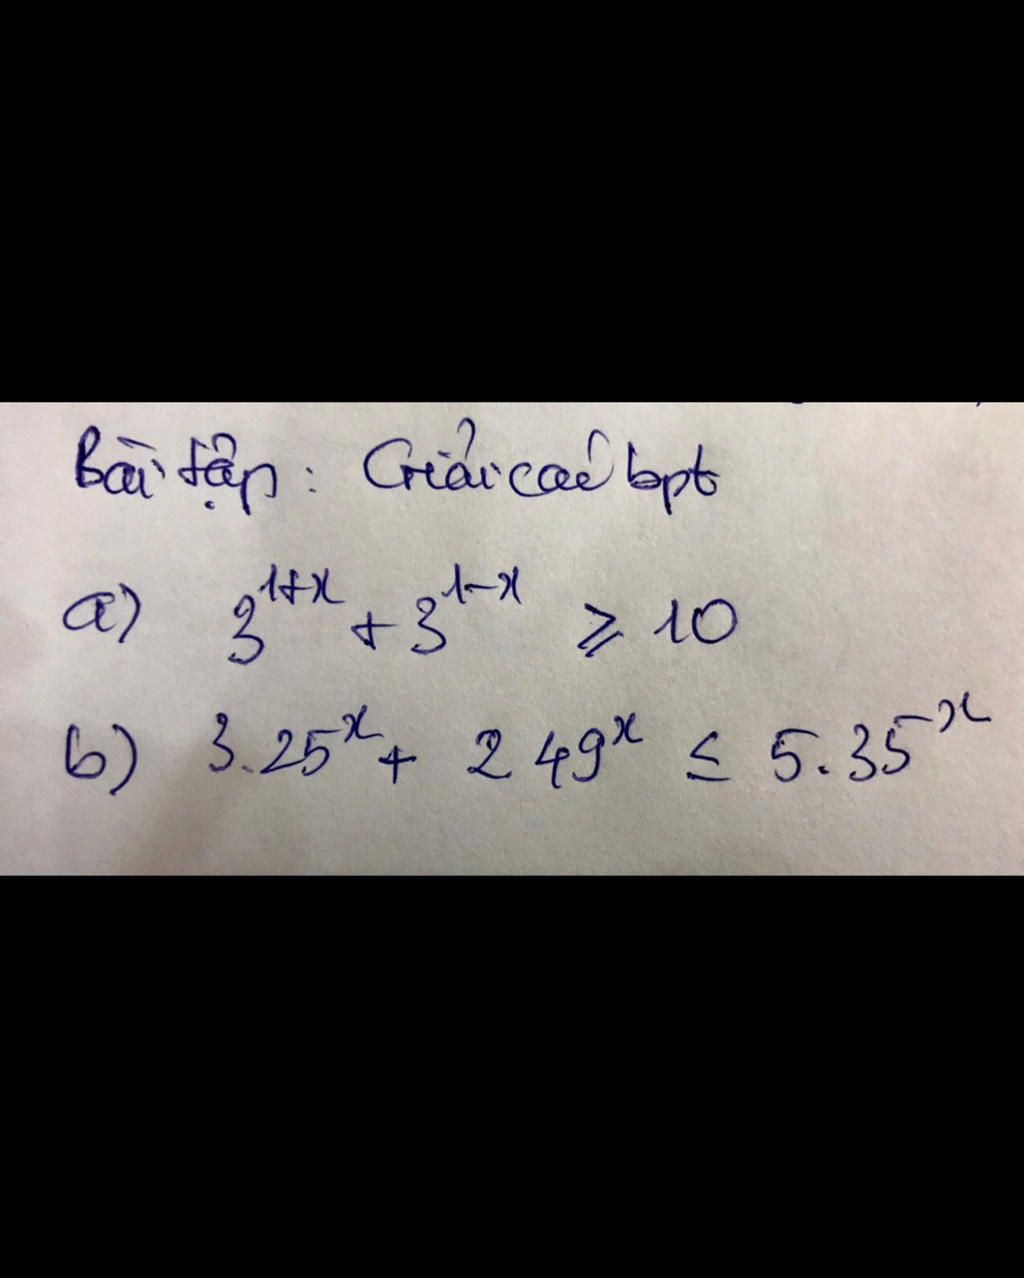 Bài tập: Giải các bpt
a) 3^{1+x} + 3^{1-x} ≥ 10
b) 3.25^x + 2 49^x ≤ 5.35^x